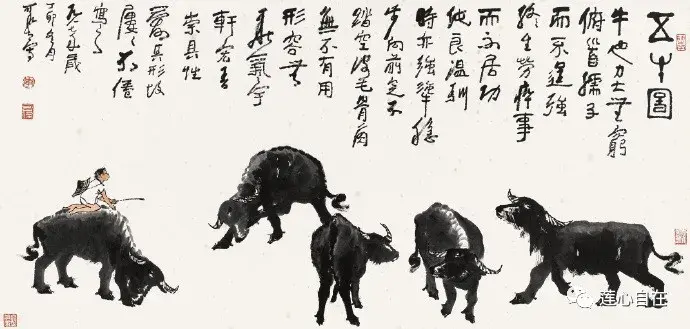 五牛圖
牛也力大無窮
俯首孺子
而不逞強
終生勞瘁事
而不居功
純良溫馴
時亦強犟穩
步向前足不
踏空皮毛骨角
無不有用
形容無
華氣宇
軒宏吾
崇其性
愛其形故
屢屢不倦
寫之
可染
莲心自任